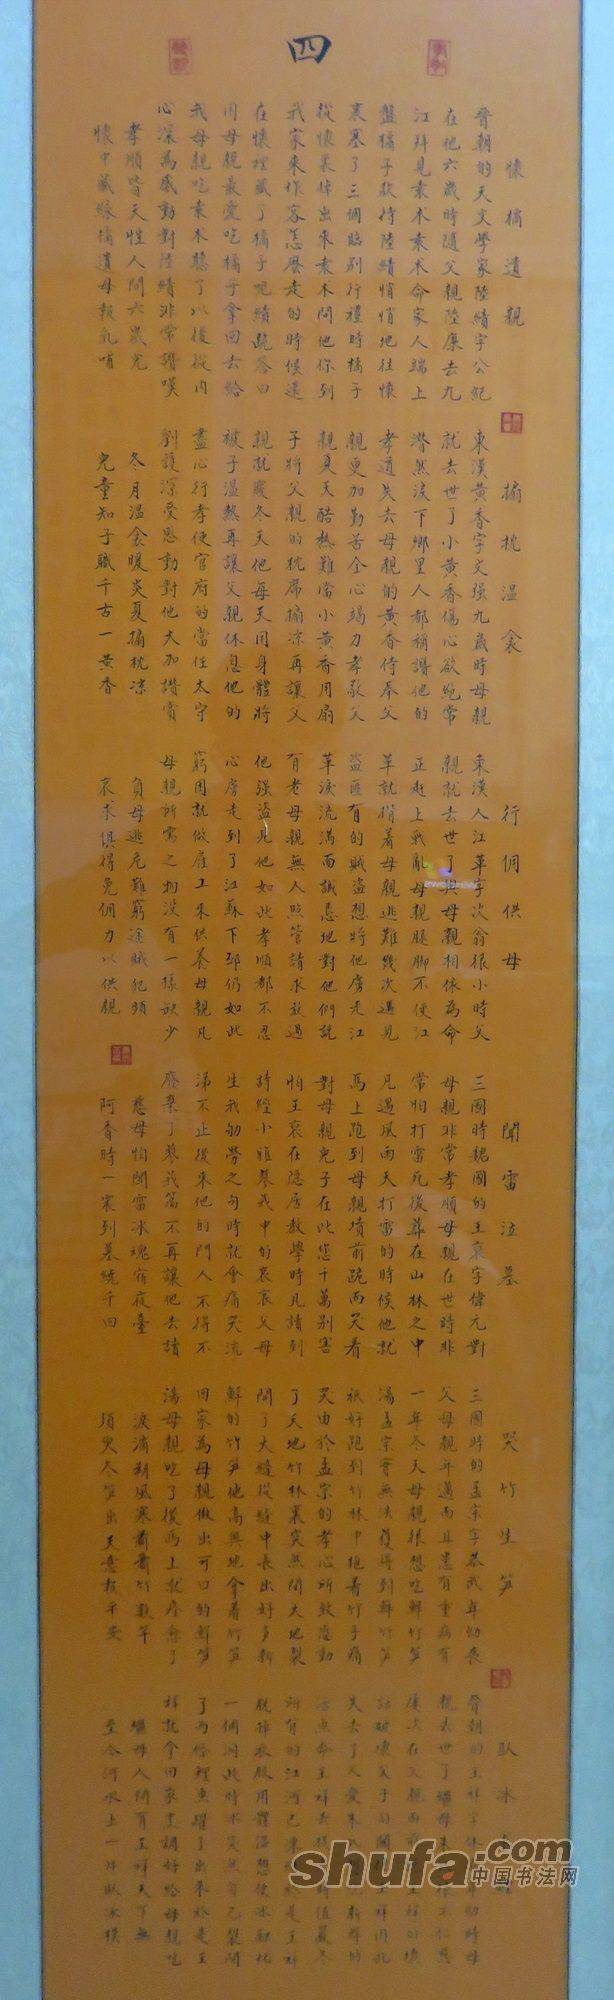 四
懷橘遺親
晉朝的天文學家陸績字公紀
在他六歲時隨父親陸康去九
江拜見袁术袁术命家人端上
盤橘子款待陸績悄悄地往懷
裏塞了三個臨別行禮時橘子
從懷裏掉出來袁术問他你到
我家來作客怎麼走的時候還
在懷裡藏了橘子呢績跪答曰
因母親最愛吃橘子拿回去給
我母親吃袁术聽了以後從內
心深為感動對陸績非常讚嘆
孝順皆天性人間六歲兒
懷中藏綠橘遺母報乳哺
搧枕溫衾
東漢黃香字文强九歲時母親
就去世了小黃香傷心欲絶常
潸然淚下鄉里人都稱讚他的
孝道失去母親的黃香侍奉父
親更加勤苦全心竭力孝敬父
親夏天酷熱難當小黃香用扇
子將父親的枕席搧凉再讓父
親就寢冬天他每天用身體將
被子溫熱再讓父親休息他的
盡心行孝使官府的當任太守
劉護深受感動對他大加讚賞
冬月溫衾暖炎夏搧枕凉
兒童知子職千古一黃香
行佣供母
東漢人江革字次翁很小時父
親就去世了與母親相依為命
正赶上戰亂母親腿脚不便江
革就揹着母親逃難幾次遇見
盜匪有的賊盜想將他虜走江
革淚流滿面誠恳地對他們說
有老母親無人照管請求放過
他强盜見他如此孝順都不忍
心虜走到了江蘇下邳仍如此
窮困就做雇工來供養母親凡
母親所需之物沒有一樣缺少
負母逃危難窮途賊犯頻
哀求俱得免佣力以供親
聞雷泣墓
三國時魏國的王裒字偉元對
母親非常孝順母親在世時非
常怕打雷死後葬在山林之中
凡遇風雨天打雷的時候他就
馬上跑到母親墳前跪而哭着
對母親兒子在此您千萬别害
怕王裒在隱居教學時凡讀到
詩經小雅蓼莪中的哀哀父母
生我劬勞之句時就會痛哭流
涕不止後來他的門人不得不
廢棄了蓼莪篇不再讓他去讀
慈母怕聞雷冰魂宿夜臺
阿香時一震到墓繞千回
哭竹生笋
三國時的孟宗字恭武年幼喪
父母親年邁而且患有重病有
一年冬天母親很想吃鮮竹笋
湯孟宗實無法獲得到鮮竹笋
祇好跑到竹林中抱着竹子痛
哭由於孟宗的孝心所致感動
了天地竹林裏突然間大地裂
開了大縫從縫中長出好多新
鮮的竹笋他高興地拿着竹笋
回家為母親做出可口的鮮笋
湯母親吃了後馬上就疼愈了
淚滴朔風寒蕭蕭竹數竿
須臾冬笋出天意報平安
臥冰
晉朝的王祥字休
親去世了繼母朱
屢次在父親面前
話破壞父子的關
失去了父愛
活魚命王祥去
所有的江河已凍
脫掉衣服用體溫想使冰融化
一個洞此時冰突然自己裂開
了兩條鯉魚躍了出來於是王
祥就拿回家烹調好給母親吃
繼母人間有王祥天下無
至今河水上一片臥冰模
shufa.com
中国书法网